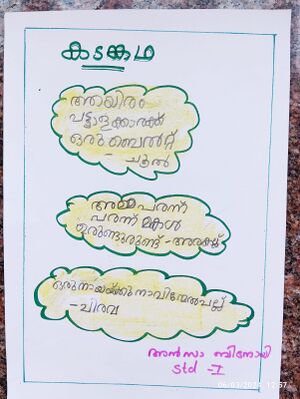 കടങ്കഥ
ആയിരം
പട്ടാളക്കാർക്ക്
ഒരു ബെൽറ്റ്
- ചൂൽ
അമ്മ പരന്ന്
മകൾ
ഉരുണ്ടുരുണ്ട് -
ഒരു നായയ്ക്കു നാവിന്മേൽ പല്ല്
- ചിരവ
അൻസാ ബിനോയി
std - I
06/03/2024 12:57